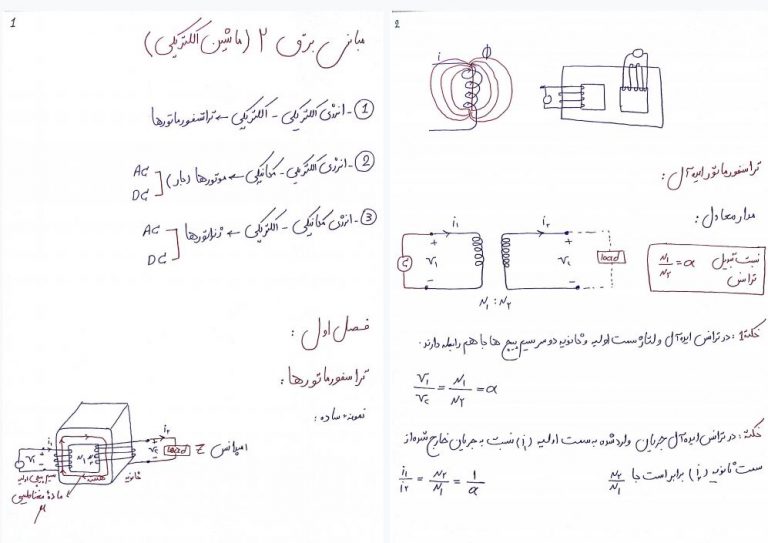 1
مبانی برق ۲ (ماشین الکتریکی)
① - انرژی الکتریکی - الکتریکی ← ترانسفورماتورها
② - انرژی الکتریکی - مکانیکی ← موتورها
AC
DC
③ - انرژی مکانیکی - الکتریکی ← ژنراتورها
AC
DC
فصل اول :
ترانسفورماتورها :
نمونه ساده :
i₁
i₂
V₁
N₁
load
Z امپدانس
سیم پیچی اولیه
هسته
ثانویه
ماده مغناطیسی
μ
2
i
φ
ترانسفورماتور ایده آل :
مدار معادل :
i₁
i₂
G
+
+
V₁
V₂
load
-
-
N₁ : N₂
نسبت تبدیل ترانس
N₁/N₂ = a
نکته 1 : در ترانس ایده آل ولتاژ سمت اولیه و ثانویه دو سر سیم پیچ ها با هم رابطه دارند.
V₁/V₂ = N₁/N₂ = a
نکته : در ترانس ایده آل جریان وارد شده به سمت اولیه (i₁) نسبت به جریان خارج شده از
سمت ثانویه (i₂) برابر است با N₂/N₁
i₁/i₂ = N₂/N₁ = 1/a